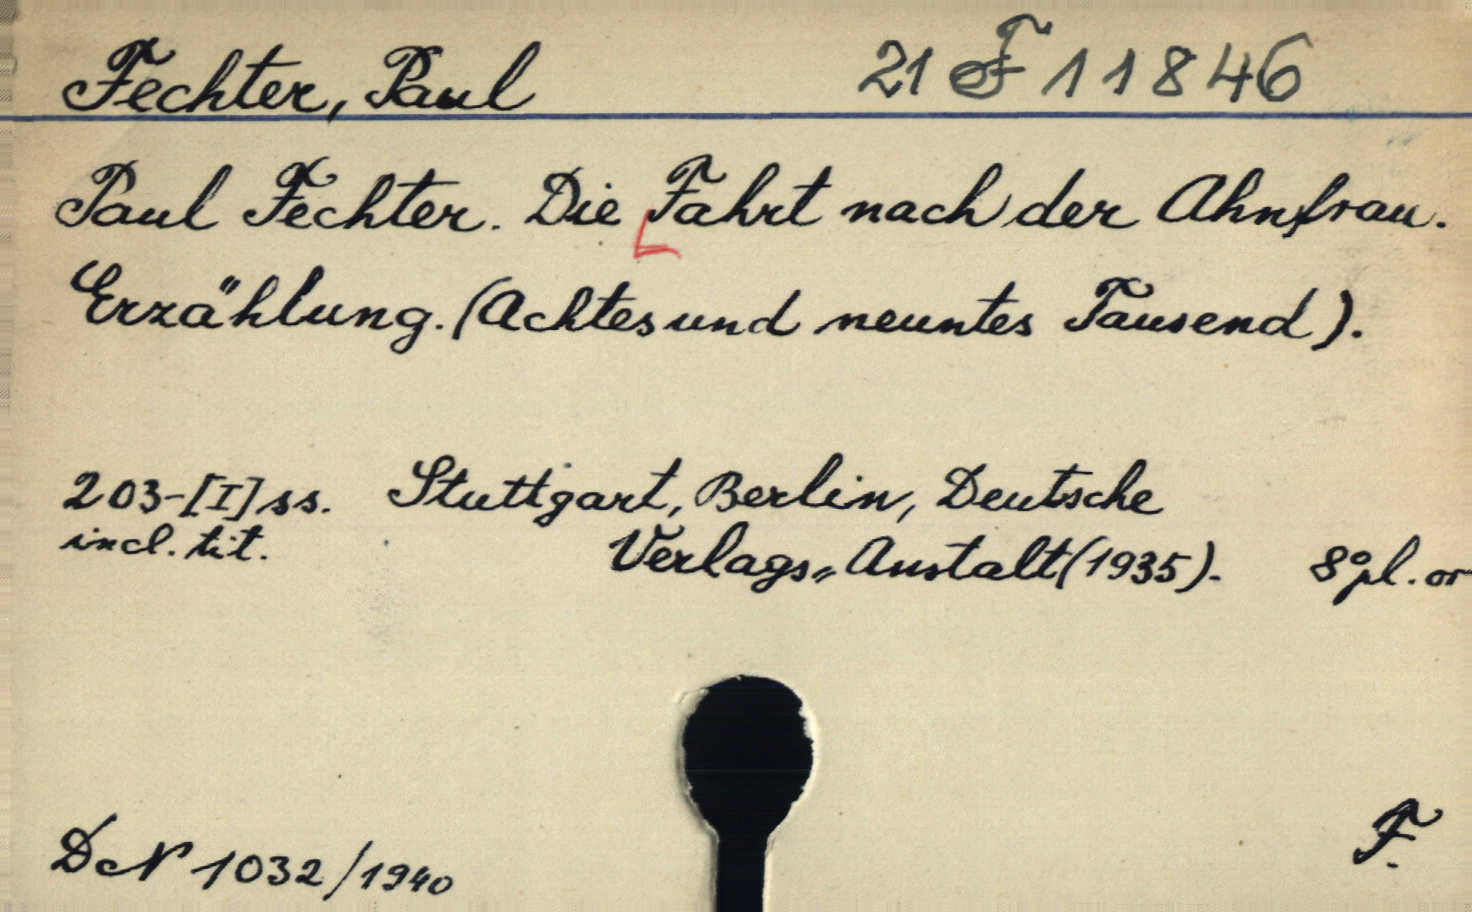 Fechter, Paul 21 F 11846
Paul Fechter. Die Fahrt nach der Ahnfrau.
Erzählung. (Achtes und neuntes Tausend).
203-[I] ss. Stuttgart, Berlin, Deutsche
incl. tit. Verlags„Anstalt (1935). 8° pl. or
DN 1032/1940 F.